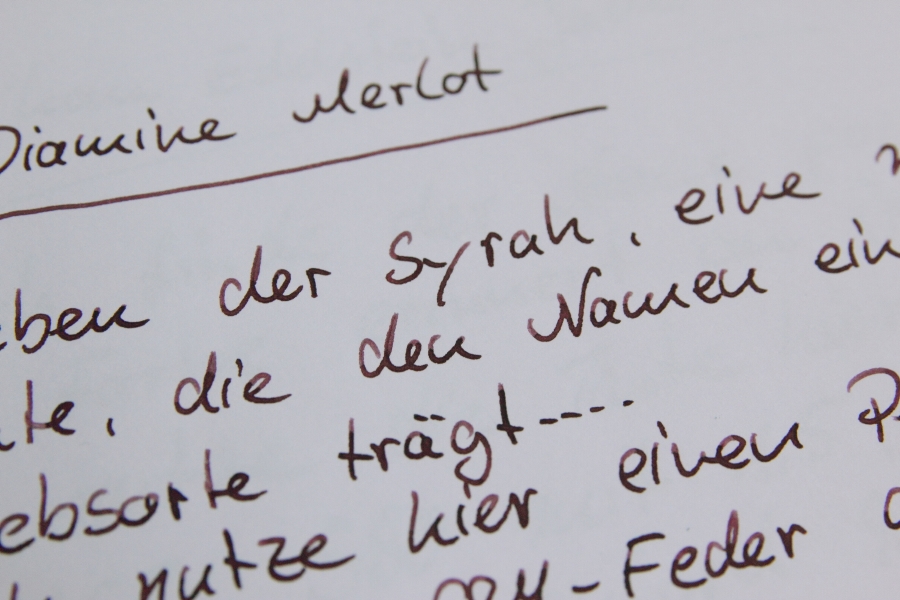 Diamine Merlot
eben der Syrah, eine
te, die den Namen ein
ebsorte trägt----
nutze hier einen
-Feder